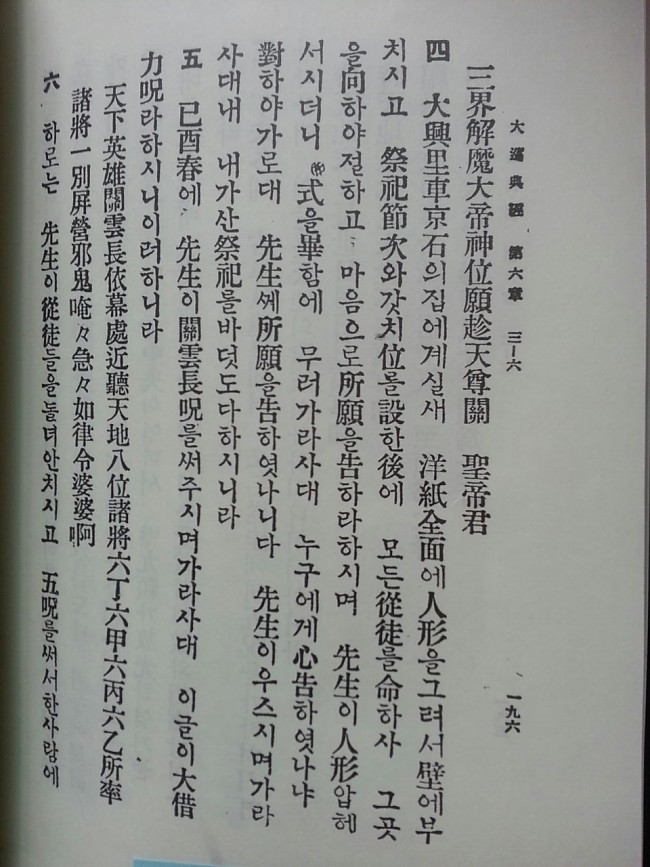 大巡典經 第六章 三—六 一九六
三界解魔大帝神位願趁天尊關 聖帝君
四 大興里車京石의집에계실새 洋紙全面에人形을그려서壁에부
치시고 祭祀節次와갓치位를設한後에 모든從徒를命하사 그곳
을向하야절하고 마음으로所願을告하라하시며 先生이人形압헤
서시더니 式을畢함에 무러가라사대 누구에게心告하엿나냐
對하야가로대 先生쎄所願을告하엿나니다 先生이우스시며가라
사대내 내가산祭祀를바덧도다하시니라
五 己酉春에 先生이關雲長呪를써주시며가라사대 이글이大借
力呪라하시니이러하니라
天下英雄關雲長依幕處近聽天地八位諸將六丁六甲六丙六乙所率
諸將一別屛營邪鬼唵々急々如律令婆婆啊
六 하로는 先生이從徒들을돌녀안치시고 五呪를써서한사람에